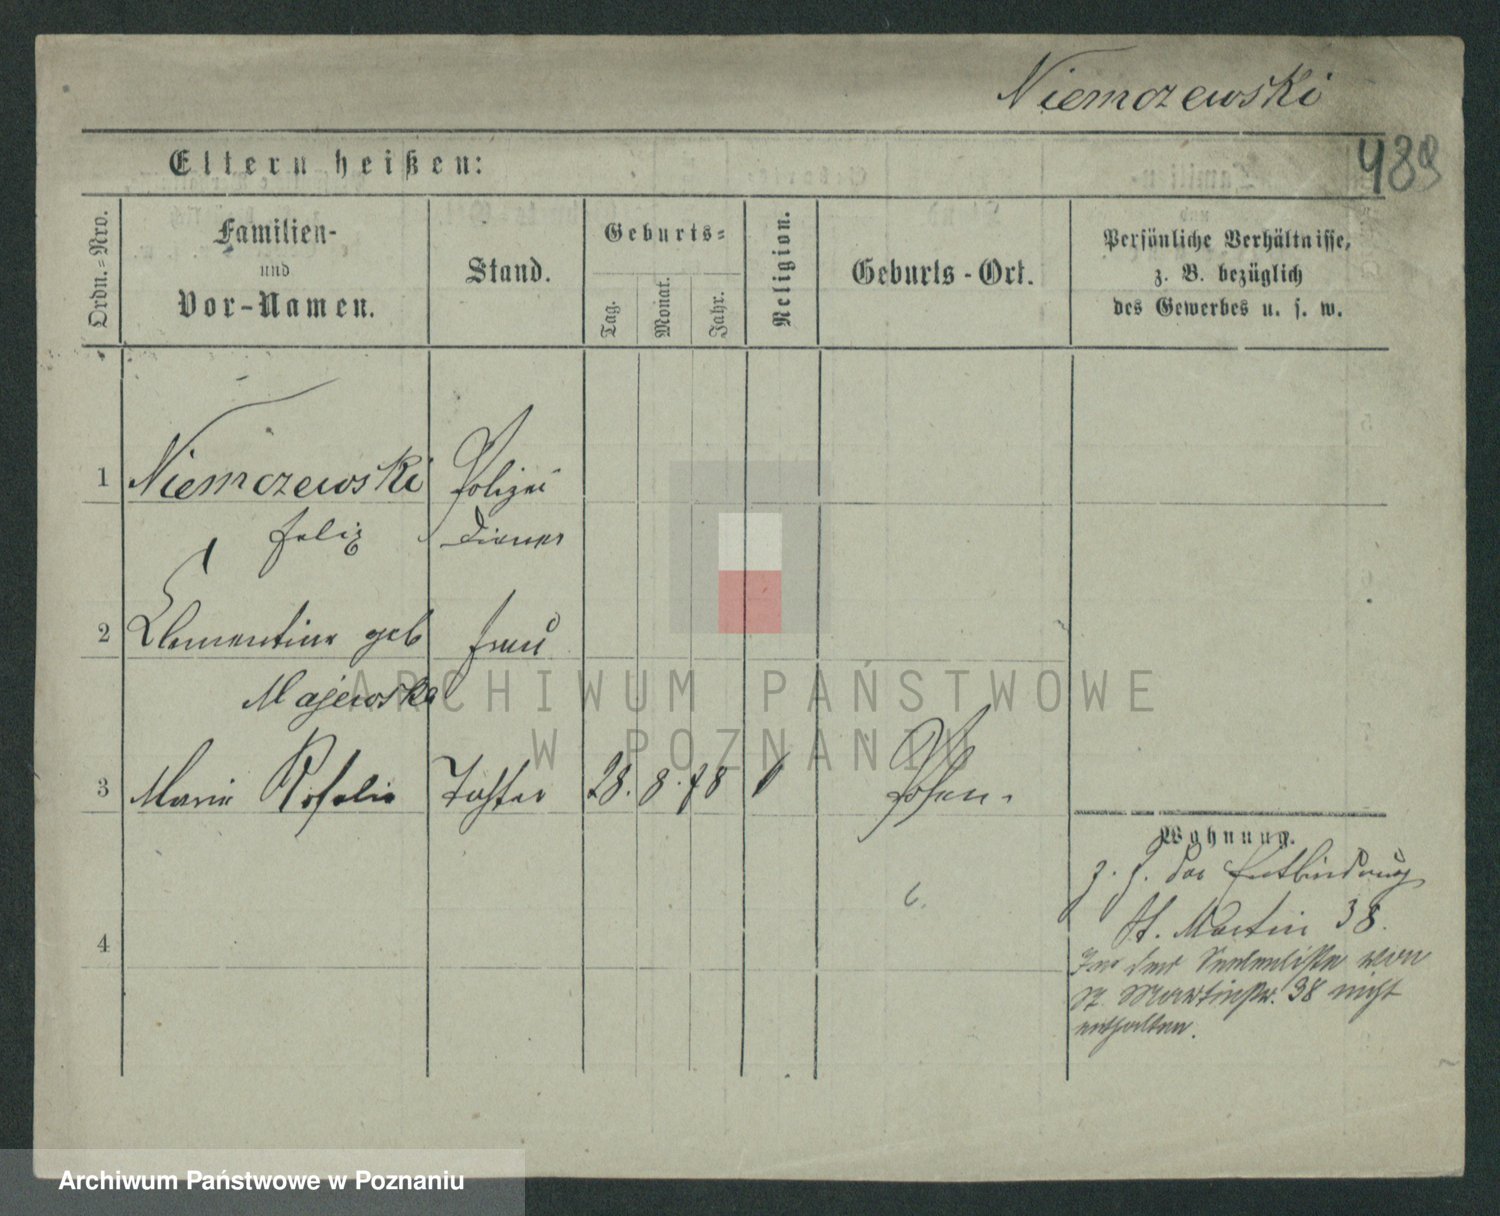 Niemczewski
489
Eltern heißen:
Ordn.=Nro.
Familien-
und
Vor-Namen.
Stand.
Geburts=
Tag.
Monat.
Jahr.
Religion.
Geburts-Ort.
Persönliche Verhältnisse,
z. B. bezüglich
des Gewerbes u. s. w.
1 Niemczewski Polizei
Felix Diener
2 Clementine geb Frau
Majewska
3 Marie Rosalie Tochter 28. 8. 78 Posen.
Wohnung.
z. Z. der Entbindung
St. Martin 38.
6.
4
In der Seelenliste von
St. Martinstr. 38 nicht
enthalten.
ARCHIWUM PAŃSTWOWE
W POZNANIU
Archiwum Państwowe w Poznaniu